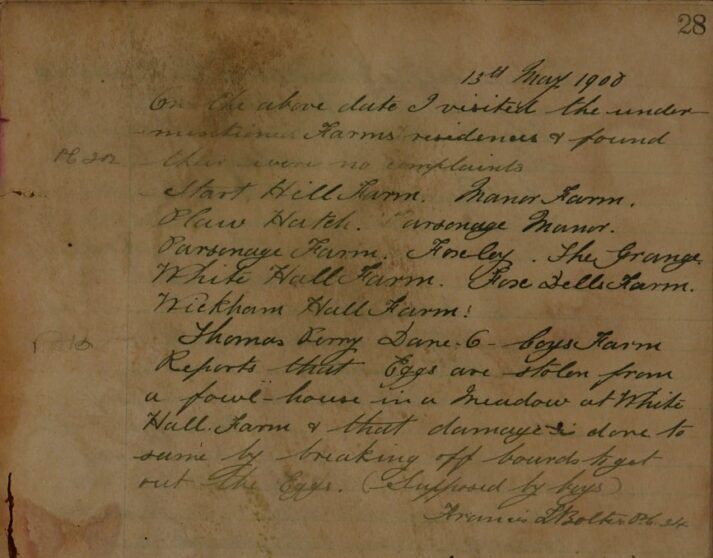 28
15th May 1908
On the above date I visited the under-
-mentioned Farms residences & found
their were no complaints
PC 202
Start Hill Farm. Manor Farm.
Plaw Hatch. Parsonage Manor.
Parsonage Farm. Foxley. The Grange.
White Hall Farm. Foxe Dells Farm.
Wickham Hall Farm:
Thomas Perry Dane-6-boys Farm
Reports that Eggs are stolen from
a fowl-house in a Meadow at White
Hall. Farm & that damage is done to
same by breaking off bourds to get
out the Eggs. (Supposed by boys)
Francis Bolter P.C. 24